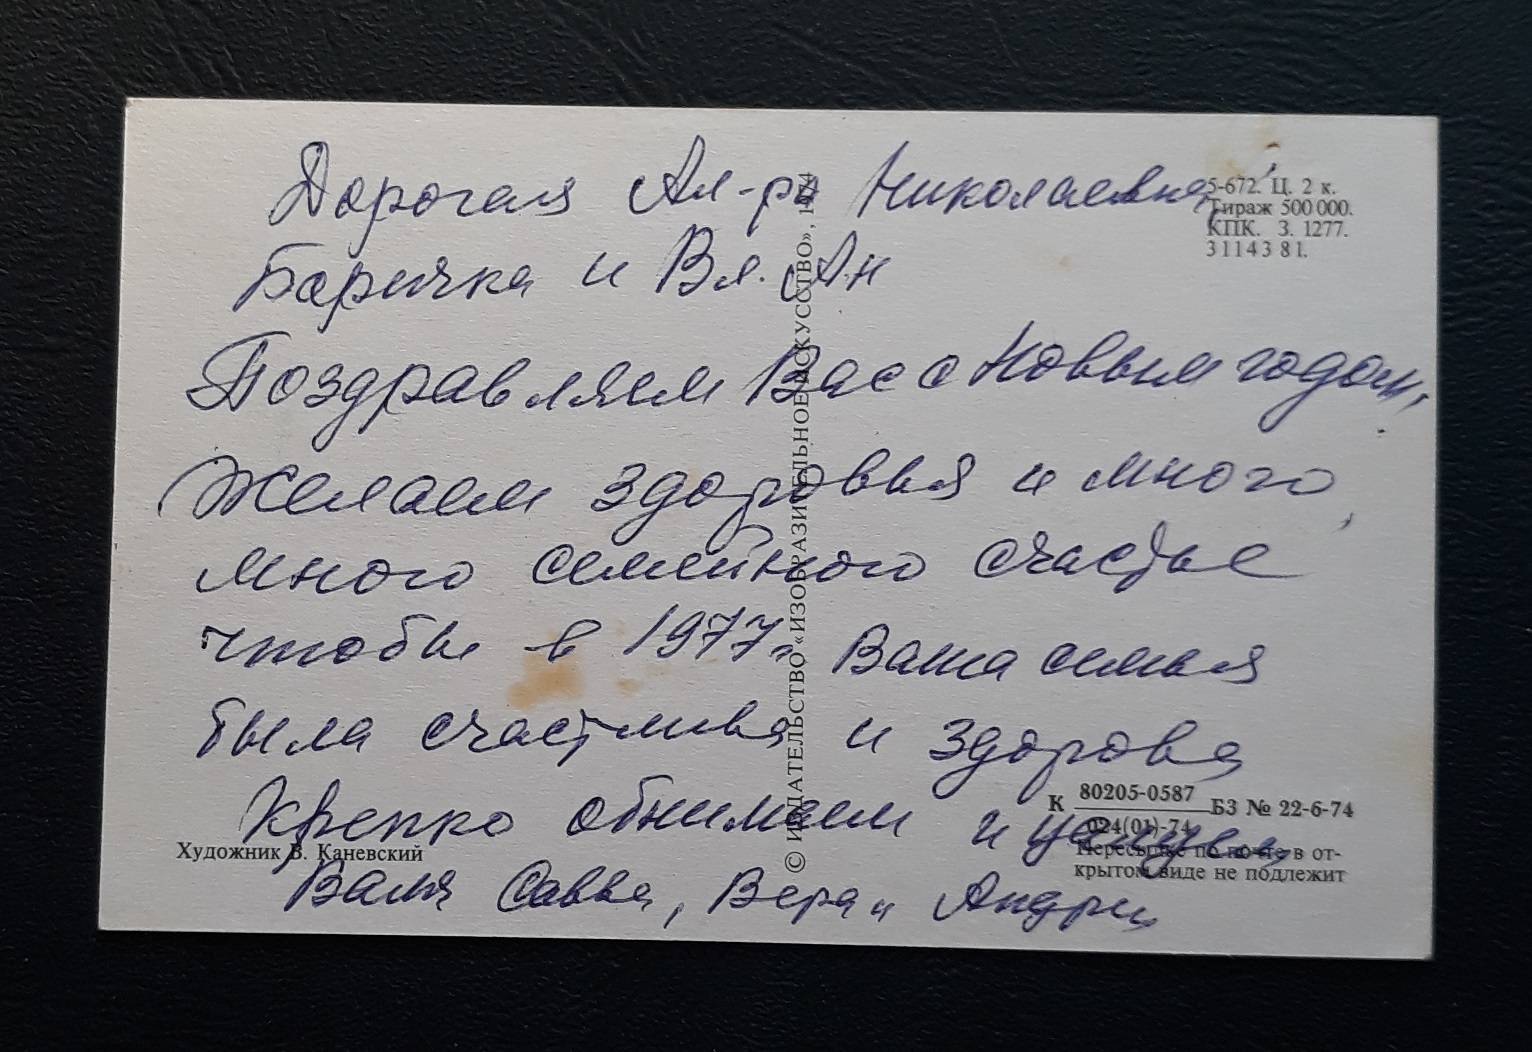 Дорогая Ал-ра Николаевна,
Баричка и Вл. Ан
Поздравляем Вас с Новым годом,
Желаем здоровья и много,
много семейного счастье
чтобы в 1977г. Ваша семья
была счастлива и здорова
Крепко обнимаем и целуем
Валя Савва, Вера и Андрей
5-672. Ц. 2 к.
Тираж 500 000.
КПК. З. 1277.
3114381.
© ИЗДАТЕЛЬСТВО «ИЗОБРАЗИТЕЛЬНОЕ ИСКУССТВО», 1974
Художник В. Каневский
К 80205-0587 БЗ № 22-6-74
024(01)-74
Пересылке по почте в от-
крытом виде не подлежит